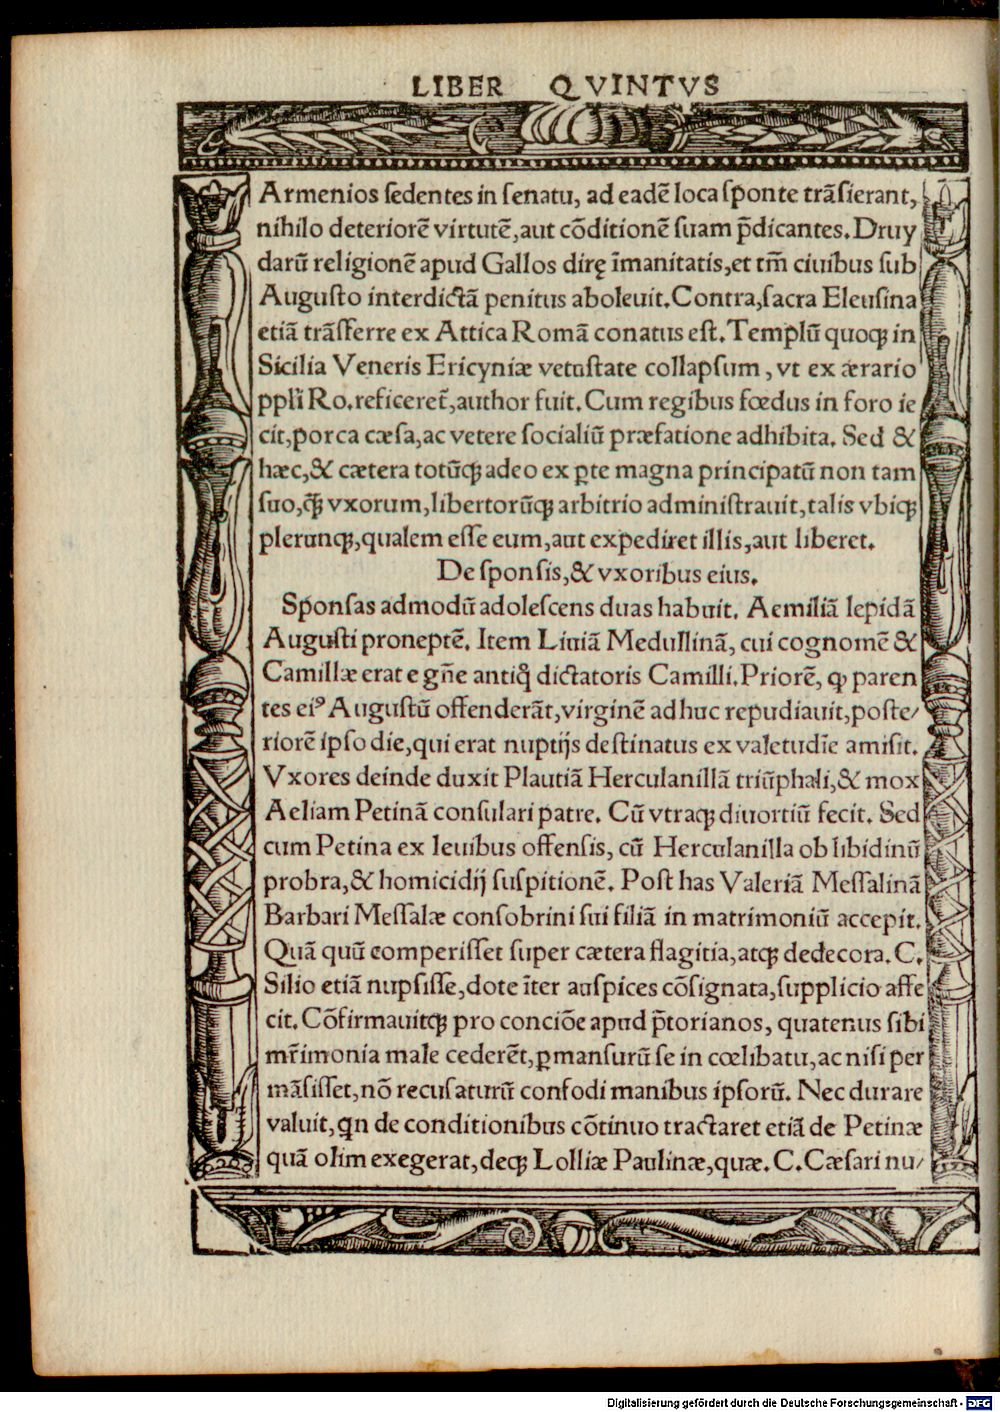 LIBER QVINTVS
Armenios ſedentes in ſenatu, ad eadē loca ſponte trāſierant,
nihilo deteriorē virtutē,aut cōditionē ſuam p̄dicantes.Druy
darū religionē apud Gallos dirę īmanitatis,et tm̄ ciuibus ſub
Auguſto interdictā penitus aboleuit.Contra,ſacra Eleuſina
etiā trāſferre ex Attica Romā conatus eſt.Templū quoqꝫ in
Sicilia Veneris Ericyniæ vetuſtate collapſum , vt ex ærario
ppl̄i Ro.reficeret̄,author fuit.Cum regibus fœdus in foro ie
cit,porca cæſa,ac vetere ſocialiū præfatione adhibita. Sed &
hæc,& cætera totūqꝫ adeo ex ꝑte magna principatū non tam
ſuo,q̄ꝫ vxorum,libertorūqꝫ arbitrio adminiſtrauit,talis vbiqꝫ
plerunqꝫ,qualem eſſe eum,aut expediret illis,aut liberet.
De ſponſis,& vxoribus eius.
Sponſas admodū adoleſcens duas habuit. Aemiliā lepidā
Auguſti proneptē. Item Liuiā Medullinā, cui cognomē &
Camillæ erat e gn̄e antiq̄ dictatoris Camilli.Priorē, ꝙ paren
tes eiꝰ Auguſtū offenderāt,virginē adhuc repudiauit,poſte/
riorē ipſo die,qui erat nuptijs deſtinatus ex valetudīe amiſit.
Vxores deinde duxit Plautiā Herculanillā triūphali,& mox
Aeliam Petinā conſulari patre. Cū vtraqꝫ diuortiū fecit. Sed
cum Petina ex leuibus offenſis, cū Herculanilla ob libidinū
probra,& homicidij ſuſpitionē. Poſt has Valeriā Meſſalinā
Barbari Meſſalæ conſobrini ſui filiā in matrimoniū accepit.
Quā quū comperiſſet ſuper cætera flagitia,atqꝫ dedecora. C.
Silio etiā nupſiſſe,dote īter auſpices cōſignata,ſupplicio affe
cit. Cōfirmauitqꝫ pro conciōe apud p̄torianos, quatenus ſibi
mr̄imonia male cederēt,ꝑmanſurū ſe in cœlibatu,ac niſi per
māſiſſet,nō recuſaturū confodi manibus ipſorū. Nec durare
valuit,qn de conditionibus cōtinuo tractaret etiā de Petinæ
quā olim exegerat,deqꝫ Lolliæ Paulinæ,quæ. C.Cæſari nu/
Digitalisierung gefördert durch die Deutsche Forschungsgemeinschaft - DFG